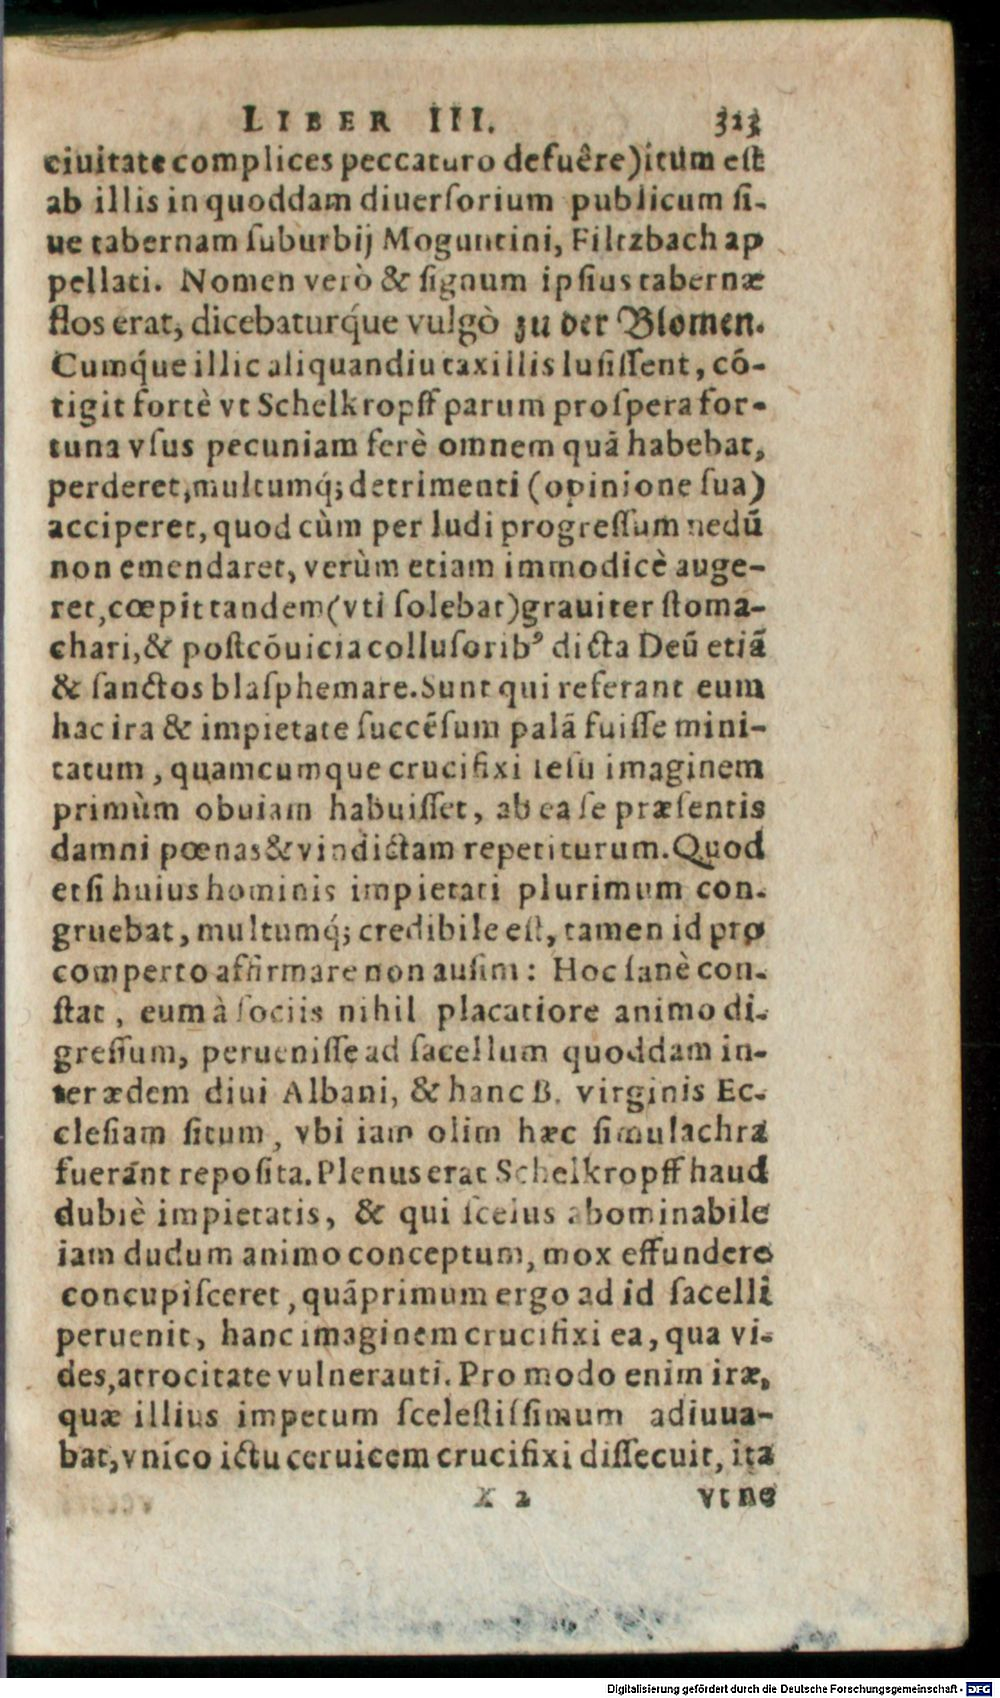 LIBER III. 323
ciuitate complices peccaturo defuêre) itum est
ab illis in quoddam diuersorium publicum si-
ue tabernam suburbij Moguntini, Filtzbach ap
pellati. Nomen verò & signum ipsius tabernæ
flos erat, dicebaturq́ue vulgò zu der Blomen.
Cumq́ue illic aliquandiu taxillis lusissent, cõ-
tigit fortè vt Schelkropff parum prospera for-
tuna vsus pecuniam ferè omnem quã habebat,
perderet, multumq́; detrimenti (opinione sua)
acciperet, quod cùm per ludi progressum nedũ
non emendaret, verùm etiam immodicè auge-
ret, cœpit tandem (vti solebat) grauiter stoma-
chari, & post cõuicia collusoribꝰ dicta Deũ etiã
& sanctos blasphemare. Sunt qui referant eum
hac ira & impietate succẽsum palã fuisse mini-
tatum, quamcumque crucifixi Iesu imaginem
primùm obuiam habuisset, ab ea se præsentis
damni pœnas & vindictam repetiturum. Quod
etsi huius hominis impietati plurimum con-
gruebat, multumq́; credibile est, tamen id pro
comperto affirmare non ausim: Hoc sanè con-
stat, eum à sociis nihil placatiore animo di-
gressum, peruenisse ad sacellum quoddam in-
ter ædem diui Albani, & hanc B. virginis Ec-
clesiam situm, vbi iam olim hæc simulachra
fuerãnt reposita. Plenus erat Schelkropff haud
dubiè impietatis, & qui scelus abominabile
iam dudum animo conceptum, mox effundere
concupisceret, quãprimum ergo ad id sacelli
peruenit, hanc imaginem crucifixi ea, qua vi-
des, atrocitate vulnerauti. Pro modo enim iræ,
quæ illius impetum scelestissimum adiuua-
bat, vnico ictu ceruicem crucifixi dissecuit, ita
X 2 vt ne
Digitalisierung gefördert durch die Deutsche Forschungsgemeinschaft - DFG